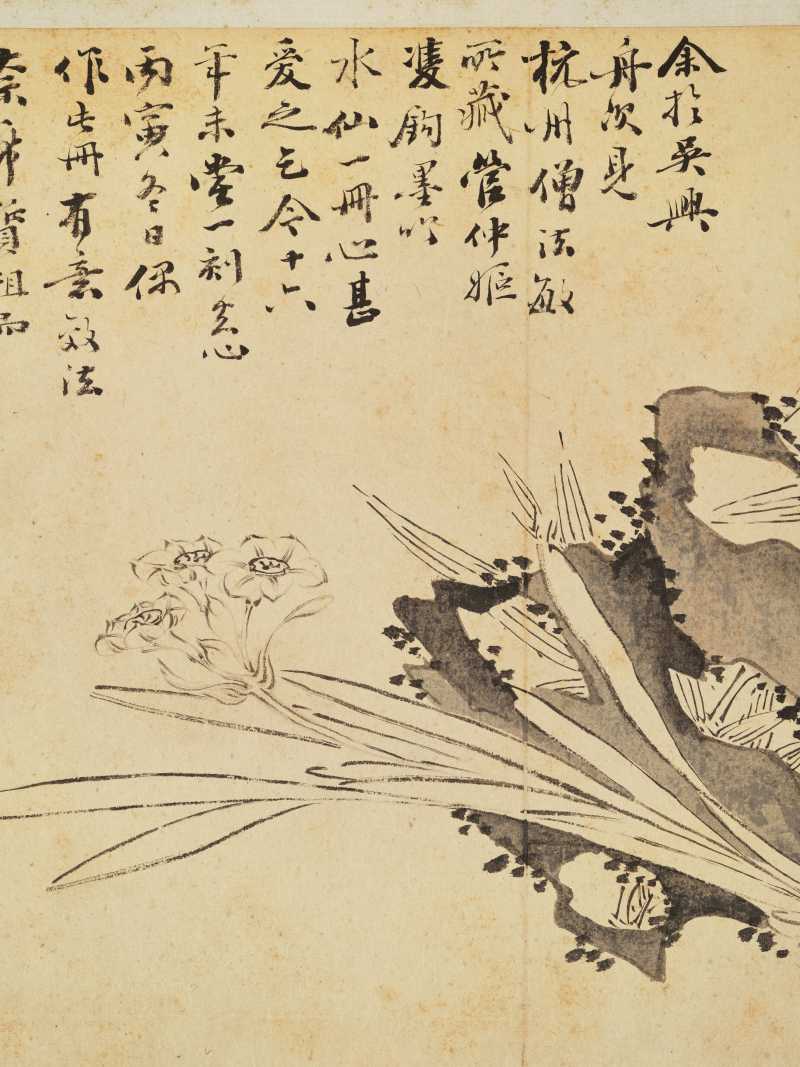 余於吳興
舟次見
杭州僧法敏
所藏管仲姬
雙鉤墨
水仙一冊心甚
愛之乞今十六
年未嘗一刻去心
丙寅冬日偶
作此冊有意效法
柰